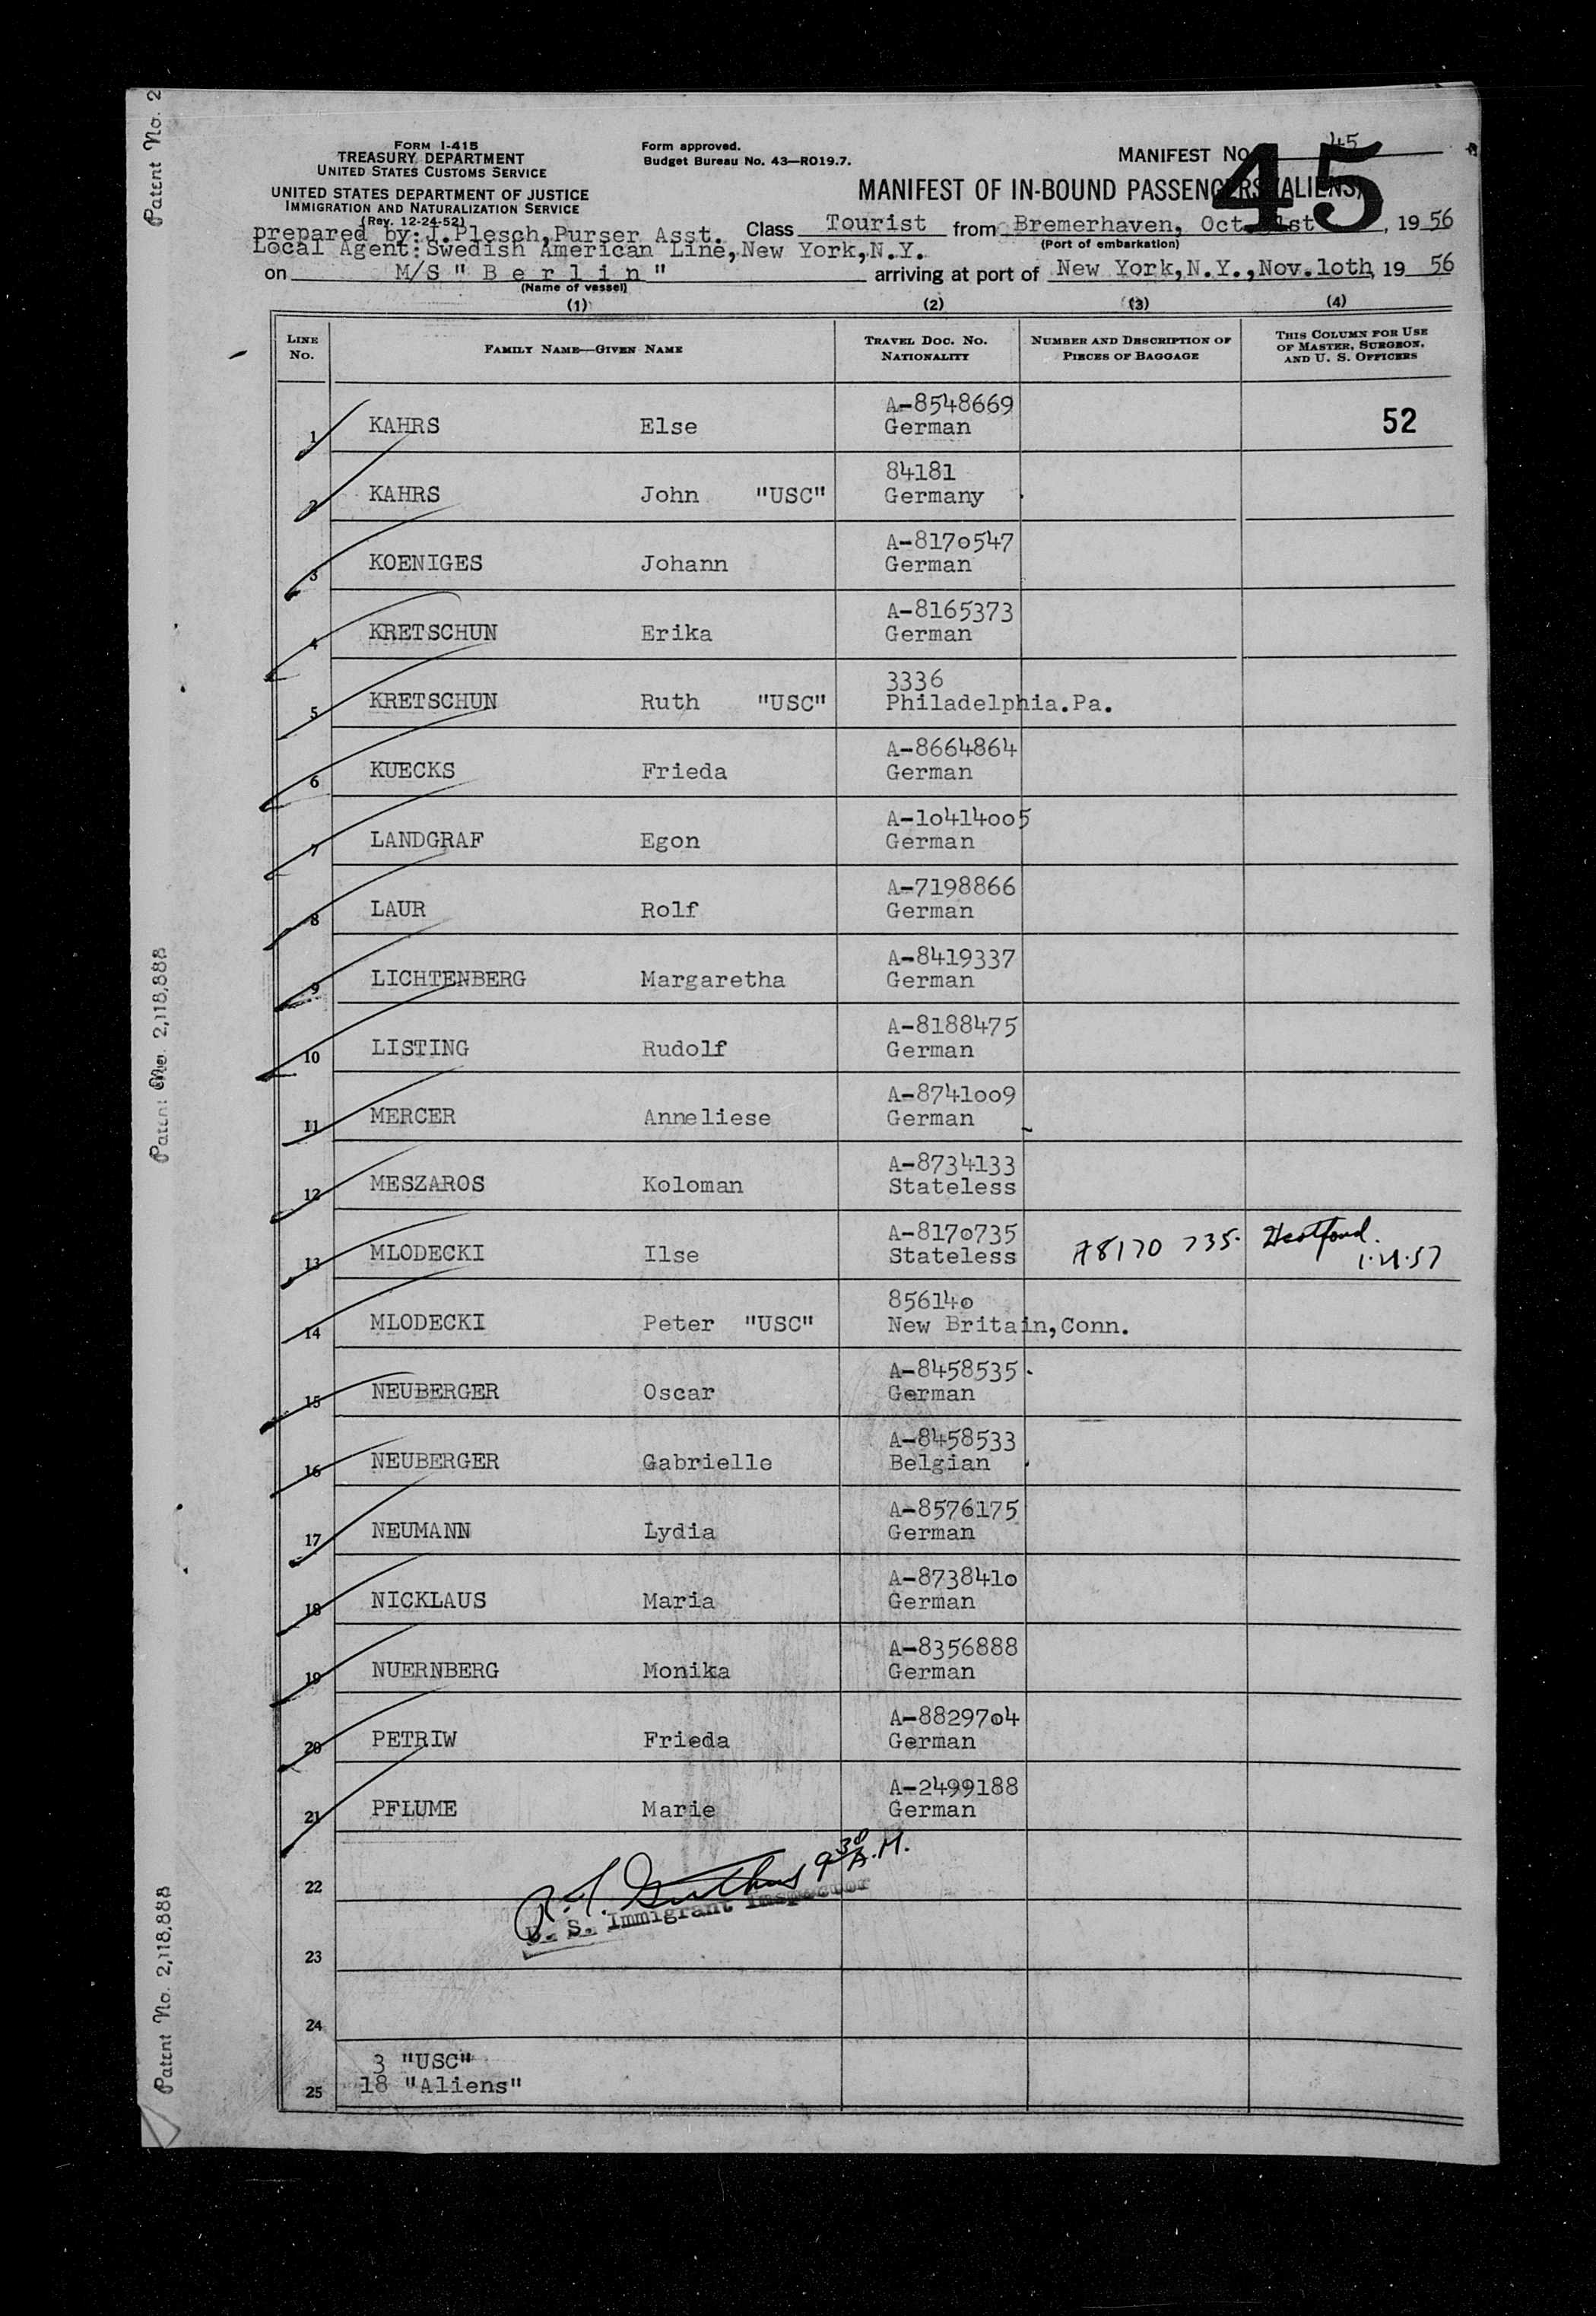 Patent No. 2
FORM I-415
TREASURY DEPARTMENT
UNITED STATES CUSTOMS SERVICE
UNITED STATES DEPARTMENT OF JUSTICE
IMMIGRATION AND NATURALIZATION SERVICE
(Rev. 12-24-52)
Form approved.
Budget Bureau No. 43—RO19.7.
MANIFEST No. 45
45
MANIFEST OF IN-BOUND PASSENGERS (ALIENS)
prepared by: J.Plesch,Purser Asst. Class Tourist from Bremerhaven, Oct. 1st, 19 56
(Port of embarkation)
Local Agent:Swedish American Line,New York,N.Y.
on M/S " B e r l i n " arriving at port of New York,N.Y.,Nov.10th, 19 56
(Name of vessel)
(1) (2) (3) (4)
LINE No. FAMILY NAME—GIVEN NAME TRAVEL DOC. No. NATIONALITY NUMBER AND DESCRIPTION OF PIECES OF BAGGAGE THIS COLUMN FOR USE OF MASTER, SURGEON, AND U. S. OFFICERS
1 KAHRS Else A-8548669 German 52
2 KAHRS John "USC" 84181 Germany
3 KOENIGES Johann A-8170547 German
4 KRETSCHUN Erika A-8165373 German
5 KRETSCHUN Ruth "USC" 3336 Philadelphia.Pa.
6 KUECKS Frieda A-8664864 German
7 LANDGRAF Egon A-10414005 German
8 LAUR Rolf A-7198866 German
9 LICHTENBERG Margaretha A-8419337 German
10 LISTING Rudolf A-8188475 German
11 MERCER Anneliese A-8741009 German
12 MESZAROS Koloman A-8734133 Stateless
13 MLODECKI Ilse A-8170735 Stateless A8170 735. Hartford. 1.21.57
14 MLODECKI Peter "USC" 856140 New Britain,Conn.
15 NEUBERGER Oscar A-8458535 German
16 NEUBERGER Gabrielle A-8458533 Belgian
17 NEUMANN Lydia A-8576175 German
18 NICKLAUS Maria A-8738410 German
19 NUERNBERG Monika A-8356888 German
20 PETRIW Frieda A-8829704 German
21 PFLUME Marie A-2499188 German
9 30 A.M.
U. S. Immigrant Inspector
22
23
24
3 "USC"
25 18 "Aliens"
Patent No. 2,118,888
Patent No. 2,118,888